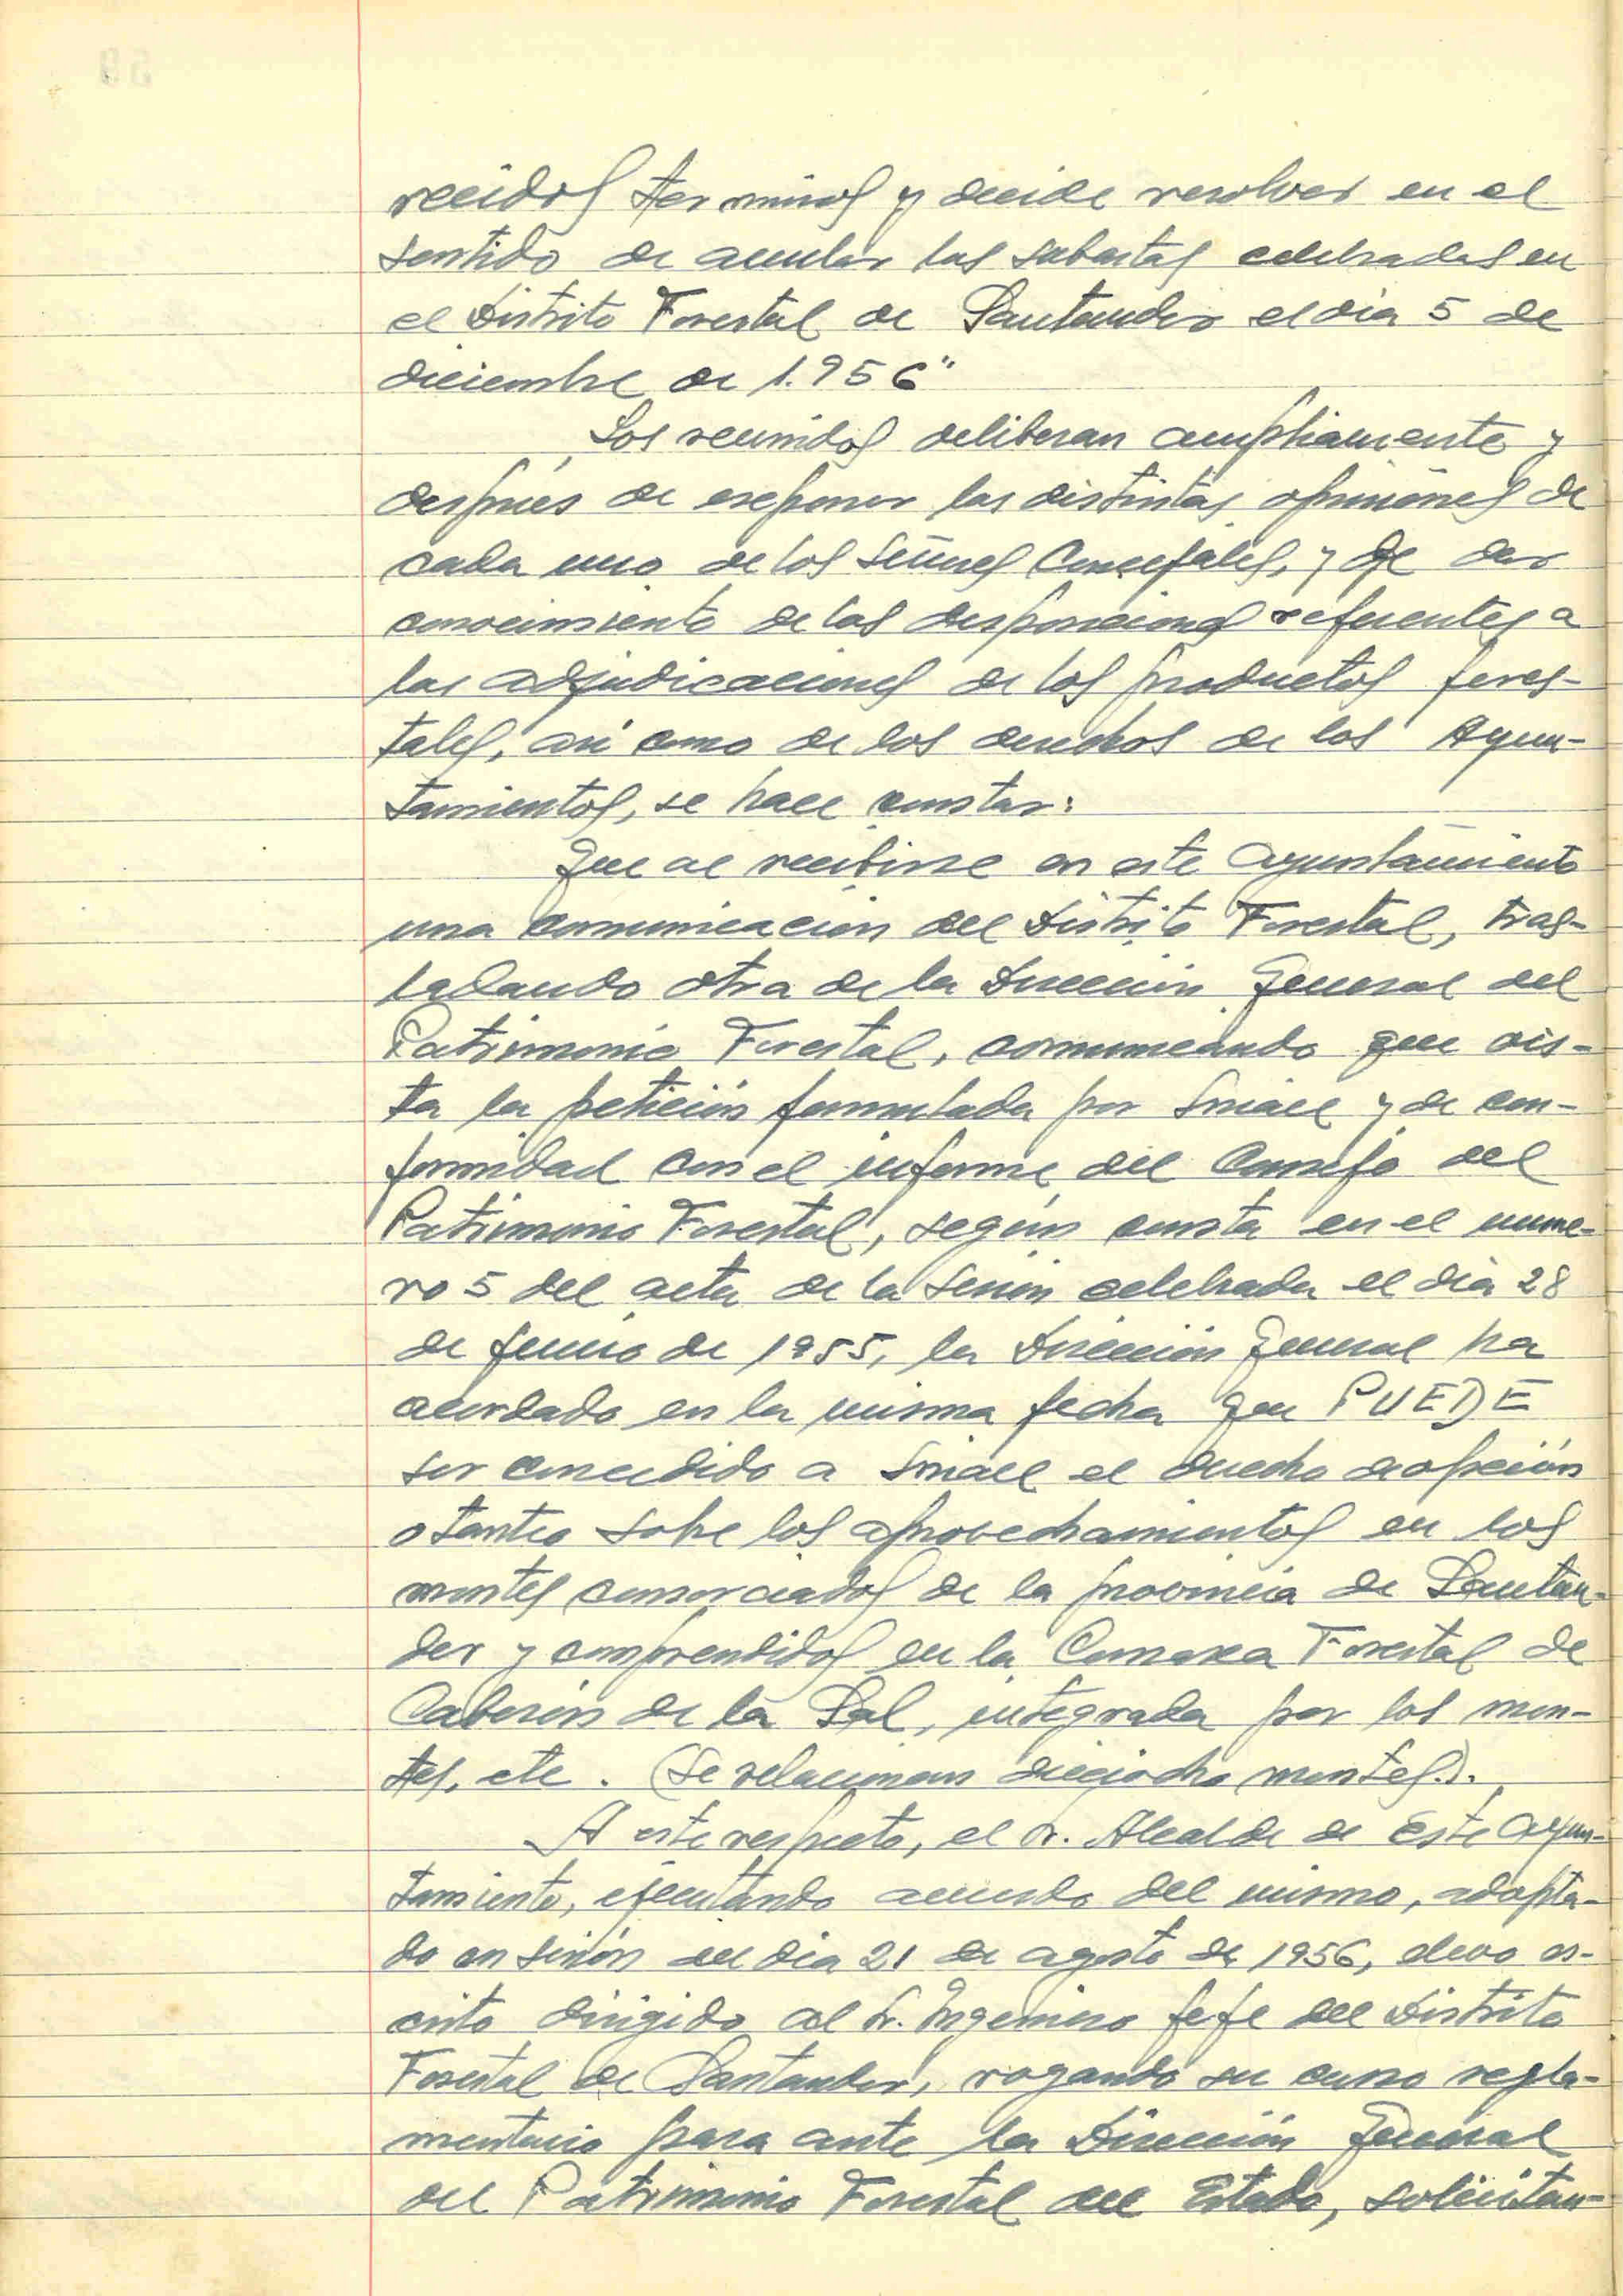 recidos terminos y decide resolver en el
sentido de anular las subastas celebradas en
el Distrito Forestal de Santander el dia 5 de
diciembre de 1.956"
Los reunidos deliberan ampliamente y
despues de exponer las distintas opiniones de
cada uno de los Señores Concejales, y de dar
conocimiento de las disposiciones referentes a
las adjudicaciones de los productos fores-
tales, asi como de los derechos de los Ayun-
tamientos, se hace constar:
Que al recibirse en este Ayuntamiento
una comunicacion del Distrito Forestal, tras-
ladando otra de la Direccion General del
Patrimonio Forestal, comunicando que vis-
ta la petición formulada por Sniace y de con-
formidad con el informe del Consejo del
Patrimonio Forestal, según consta en el nume-
ro 5 del acta de la Sesion celebrada el dia 28
de Junio de 1955, la Dirección General ha
acordado en la misma fecha que PUEDE
ser concedido a Sniace el derecho de opción
o tanteo sobre los aprovechamientos en los
montes consorciados de la provincia de Santan-
der y comprendidos en la Comarca Forestal de
Cabezón de la Sal, integrada por los mon-
tes, etc. (Se relacionan dieciocho montes.).
A este respecto, el Sr. Alcalde de Este Ayun-
tamiento, ejecutando acuerdo del mismo, adopta-
do en sesión del dia 21 de agosto de 1956, elevo es-
crito dirigido al Sr. Ingeniero Jefe del Distrito
Forestal de Santander, rogando su curso regla-
mentario para ante la Dirección General
del Patrimonio Forestal del Estado, solicitan-